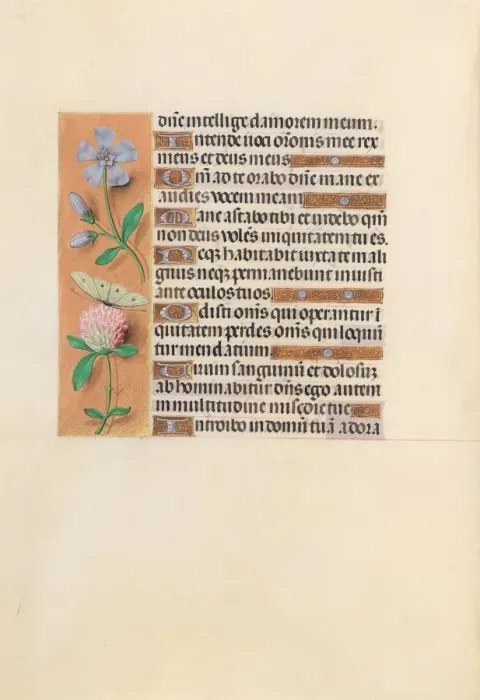 dn̄e intellige clamorem meum.
Intende uoci or̄onis mee rex
meus et deus meus
Qm̄ ad te orabo dn̄e mane ex
audies vocem meam
Mane astabo tibi et uidebo qm̄
non deus volēs iniquitatem tu es.
Neqȝ habitabit iuxta te mali
gnus neqȝ permanebunt iniusti
ante oculos tuos
Odisti om̄s qui operantur i
quitatem perdes om̄s qui loquūt
tur mendatium
Uirum sanguinū et dolosuȝ
abhominabitur dn̄s ego autem
in multitudine mis̄cōie tue
Introibo in domū tuā adora